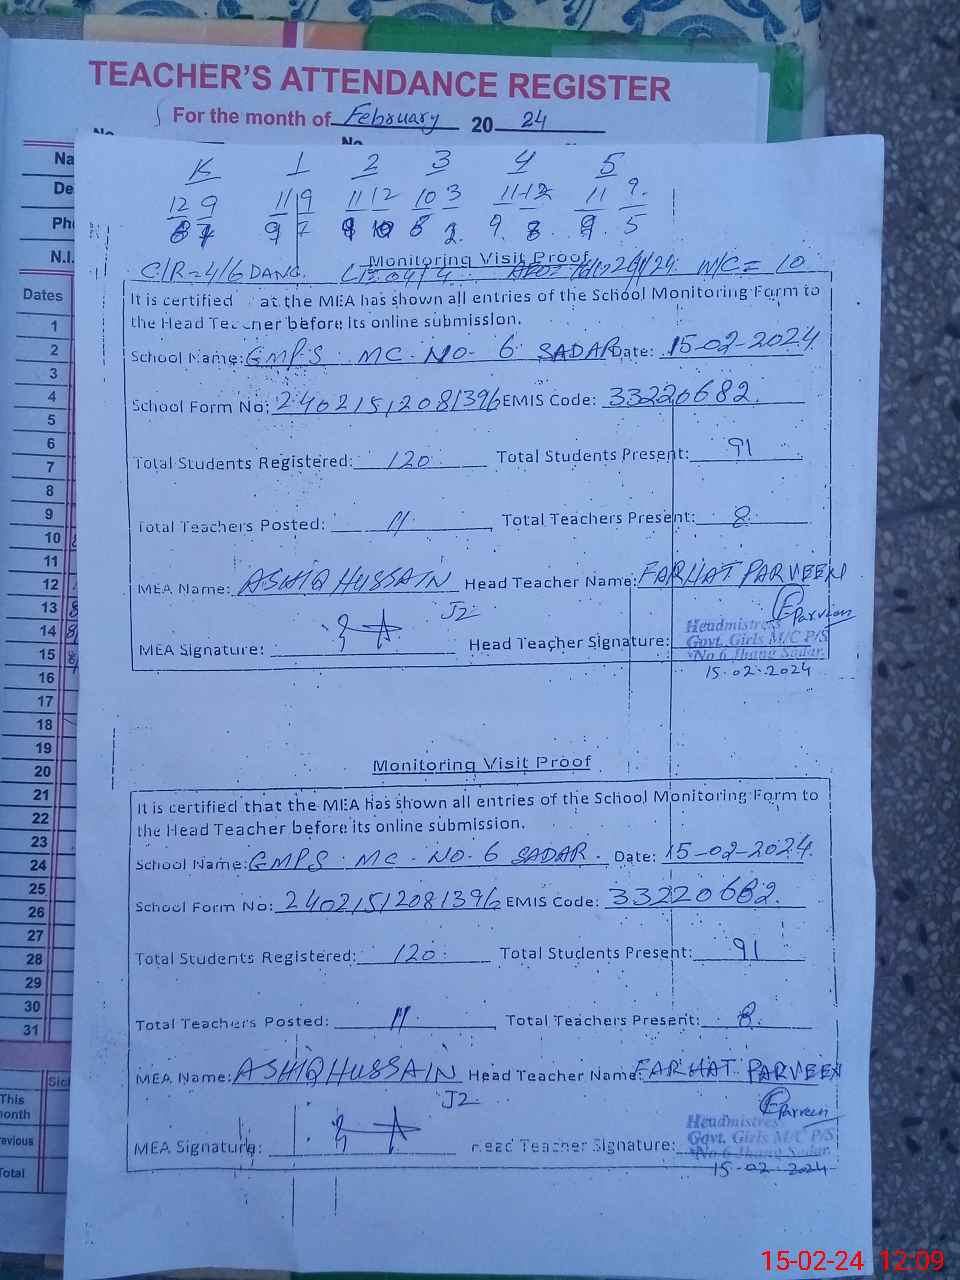 TEACHER'S ATTENDANCE REGISTER
For the month of February 20 24
No. No.
K 1 2 3 4 5
12 9 11 9 11 12 10 3 11 12 11 9
8 7 9 7 9 10 8 2 9 8 9 5
Monitoring Visit Proof
C/R=4/6 DANG. M/C = 10
It is certified at the MEA has shown all entries of the School Monitoring Form to
the Head Teacher before its online submission.
School Name: GMPS MC NO 6 SADAR Date: 15-02-2024
School Form No: 24021512081396 EMIS Code: 33220682
Total Students Registered: 120 Total Students Present: 91
Total Teachers Posted: 11 Total Teachers Present: 8
MEA Name: ASHIQ HUSSAIN Head Teacher Name: FARHAT PARVEEN
J2
MEA Signature: Head Teacher Signature: Parveen
Headmistress
Govt. Girls M/C P/S
No 6 Jhang Sadar.
15.02.2024
Monitoring Visit Proof
It is certified that the MEA has shown all entries of the School Monitoring Form to
the Head Teacher before its online submission.
School Name: GMPS MC NO 6 SADAR Date: 15-02-2024
School Form No: 24021512081396 EMIS Code: 33220682
Total Students Registered: 120 Total Students Present: 91
Total Teachers Posted: 11 Total Teachers Present: 8
MEA Name: ASHIQ HUSSAIN Head Teacher Name: FARHAT PARVEEN
J2
MEA Signature: Head Teacher Signature: Parveen
Headmistress
Govt. Girls M/C P/S
No 6 Jhang Sadar.
15-02-2024
Na
De
Ph
N.I.
Dates
1
2
3
4
5
6
7
8
9
10
11
12
13 8
14 8
15 8
16
17
18
19
20
21
22
23
24
25
26
27
28
29
30
31
Sick
This
month
Previous
Total
15-02-24 12:09